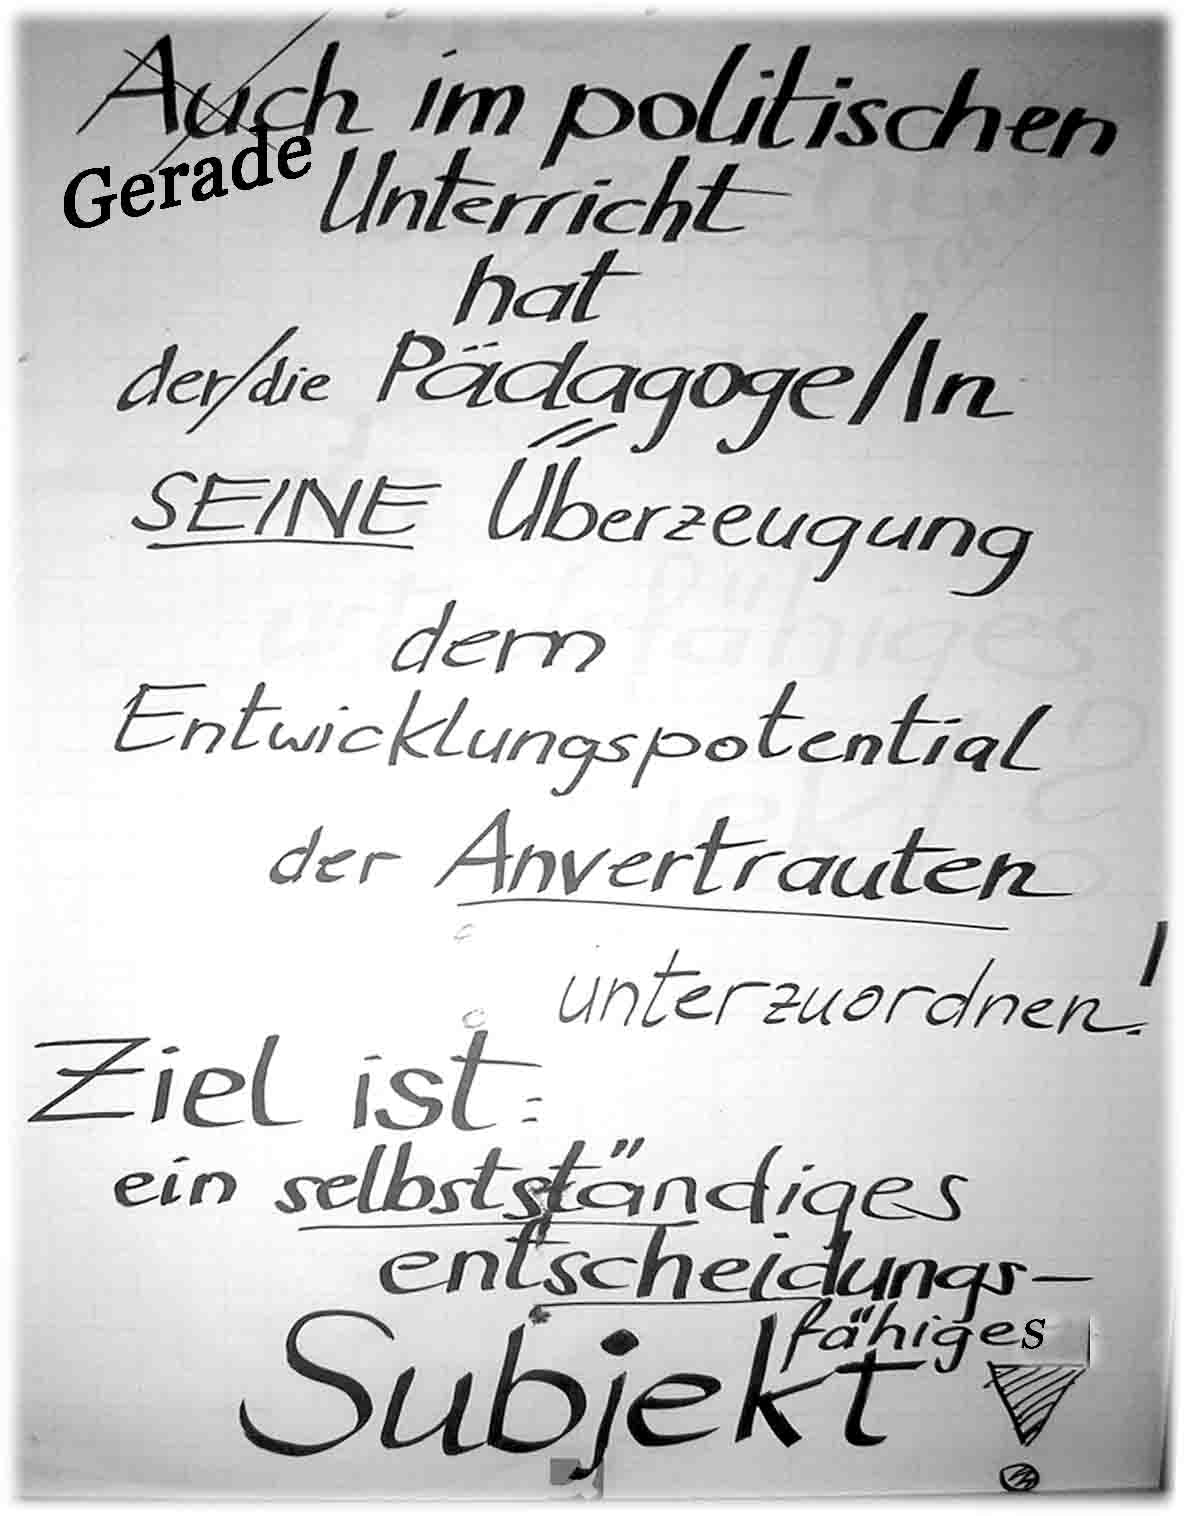 Auch im politischen
Gerade Unterricht
hat
der/die Pädagoge/In
SEINE Überzeugung
dem
Entwicklungspotential
der Anvertrauten
unterzuordnen!
Ziel ist:
ein selbstständiges
entscheidungs-
fähiges
Subjekt!